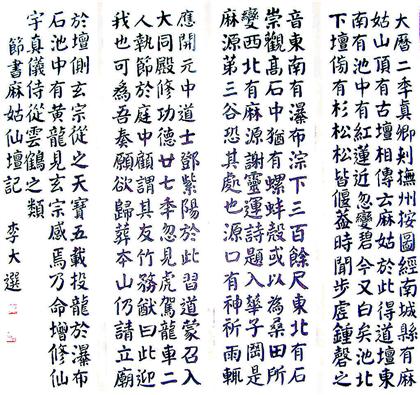 大曆二年真卿刾撫州按圖經南城縣有麻
姑山頂有古壇相傳云麻姑於此得道壇東
南有池中有紅蓮近忽變碧今又白矣池北
下壇傍有杉松松皆偃蓋時聞步虛鍾磬之
音東南有瀑布淙下三百餘尺東北有石
崇觀高石中猶有螺蚌殼或以為桑田所
變西北有麻源謝靈運詩題入華子岡是
麻源第三谷恐其處也源口有神祈雨輒
應開元中道士鄧紫陽於此習道蒙召入
大同殿修功德廿七年忽見虎駕龍車二
人執節於庭中顧謂其友竹務猷曰此迎
我也可為吾奏願欲歸葬本山仍請立廟
於壇側玄宗從之天寶五載投龍於瀑布
石池中有黃龍見玄宗感焉乃命增修仙
宇真儀侍從雲鶴之類
節書麻姑仙壇記 李大選